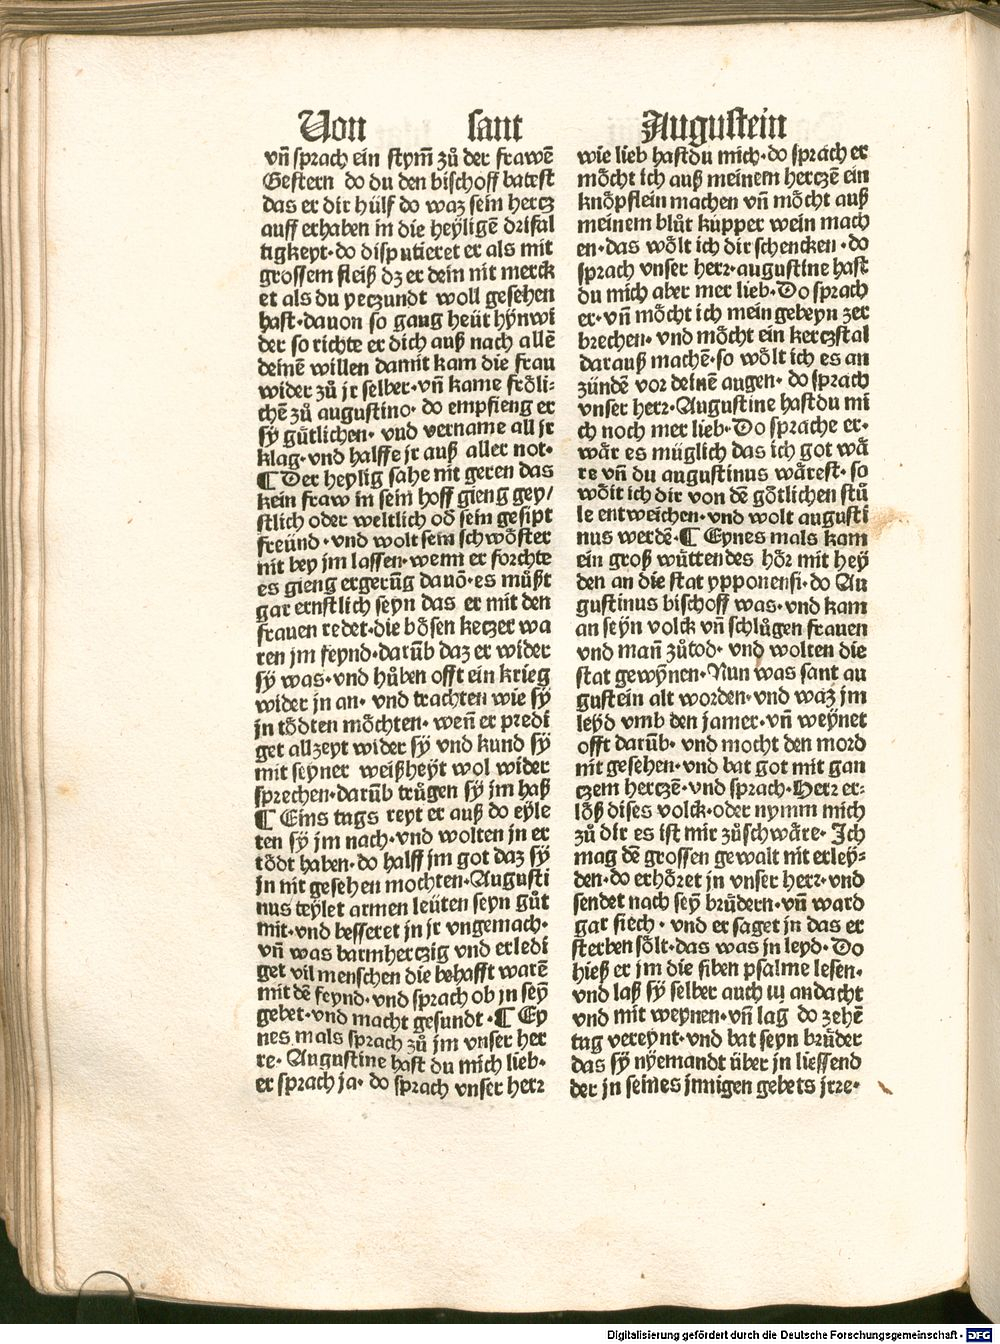 Von sant Augustein
vñ sprach ein stym̃ zů der frawẽ
Gestern do du den bischoff batest
das er dir hülf do waz sein hercz
auff erhaben in die heÿligẽ drifal
tigkeyt· do disputieret er als mit
grossem fleiß dz er dein nit merck
et als du yeczundt woll gesehen
hast· dauon so gang heüt hÿnwi
der so richte er dich auß nach allẽ
deinẽ willen damit kam die frau
wider zů jr selber· vñ kame frôli-
chẽ zů augustino· do empfieng er
sÿ gůtlichen· vnd vername all jr
klag· vnd halffe jr auß aller not·
¶ Der heylig sahe nit geren das
kein fraw in sein hoff gieng gey/
stlich oder weltlich od̃ sein gesipt
freünd· vnd wolt sein schwôster
nit bey jm lassen· wenn er forchte
es gieng ergerũg dauõ· es můßt
gar ernstlich seyn das er mit den
frauen redet· die bôsen keczer wa
ren jm feynd· darũb daz er wider
sÿ was· vnd hůben offt ein krieg
wider jn an· vnd trachten wie sÿ
jn tôdten môchten· weñ er predi
get allzeyt wider sÿ vnd kund sÿ
mit seyner weißheÿt wol wider
sprechen· darũb trůgen sÿ jm haß
¶ Eins tags reyt er auß do eyle
ten sÿ jm nach· vnd wolten jn er
tôdt haben· do halff jm got daz sÿ
jn nit gesehen mochten· Augusti
nus teÿlet armen leüten seyn gůt
mit· vnd besseret jn jr vngemach·
vñ was barmherczig vnd erledi
get vil menschen die behafft warẽ
mit dẽ feynd· vnd sprach ob jn seÿ
gebet· vnd macht gesundt· ¶ Ey
nes mals sprach zů jm vnser her
re· Augustine hast du mich lieb·
er sprach ja· do sprach vnser herr
wie lieb hastdu mich· do sprach er
môcht ich auß meinem herczẽ ein
knôpflein machen vñ môcht auß
meinem blůt kupper wein mach
en· das wôlt ich dir schencken· do
sprach vnser herr· augustine hast
du mich aber mer lieb· Do sprach
er· vñ môcht ich mein gebeyn zer
brechen· vnd môcht ein kerczstal
darauß machẽ· so wôlt ich es an
zündẽ vor deinẽ augen· do sprach
vnser herr· Augustine hastdu mi
ch noch mer lieb· Do sprache er·
wår es müglich das ich got wå
re vñ du augustinus wårest· so
wôlt ich dir von dẽ gôtlichen stů
le entweichen· vnd wolt augusti
nus werdẽ· ¶ Eynes mals kam
ein groß wůttendes hôr mit hey
den an die stat ypponensi· do Au
gustinus bischoff was· vnd kam
an seÿn volck vñ schlůgen frauen
vnd mañ zůtod· vnd wolten die
stat gewÿnen· Nun was sant au
gustein alt worden· vnd waz jm
leÿd vmb den jamer· vñ weÿnet
offt darũb· vnd mocht den mord
nit gesehen· vnd bat got mit gan
czem herczẽ· vnd sprach· Herr er-
lôß dises volck· oder nymm mich
zů dir es ist mir zůschwåre· Ich
mag dẽ grossen gewalt nit erleÿ-
den· do erhôret jn vnser herr· vnd
sendet nach seÿ brůdern· vñ ward
gar siech· vnd er saget jn das er
sterben sôlt· das was jn leyd· Do
hieß er jm die siben psalme lesen·
vnd laß sÿ selber auch in andacht
vnd mit weynen· vñ lag do zehẽ
tag vereynt· vnd bat seyn brůder
das sÿ nÿemandt über jn liessend
der jn seines jnnigen gebets jrre·
Digitalisierung gefördert durch die Deutsche Forschungsgemeinschaft - DFG